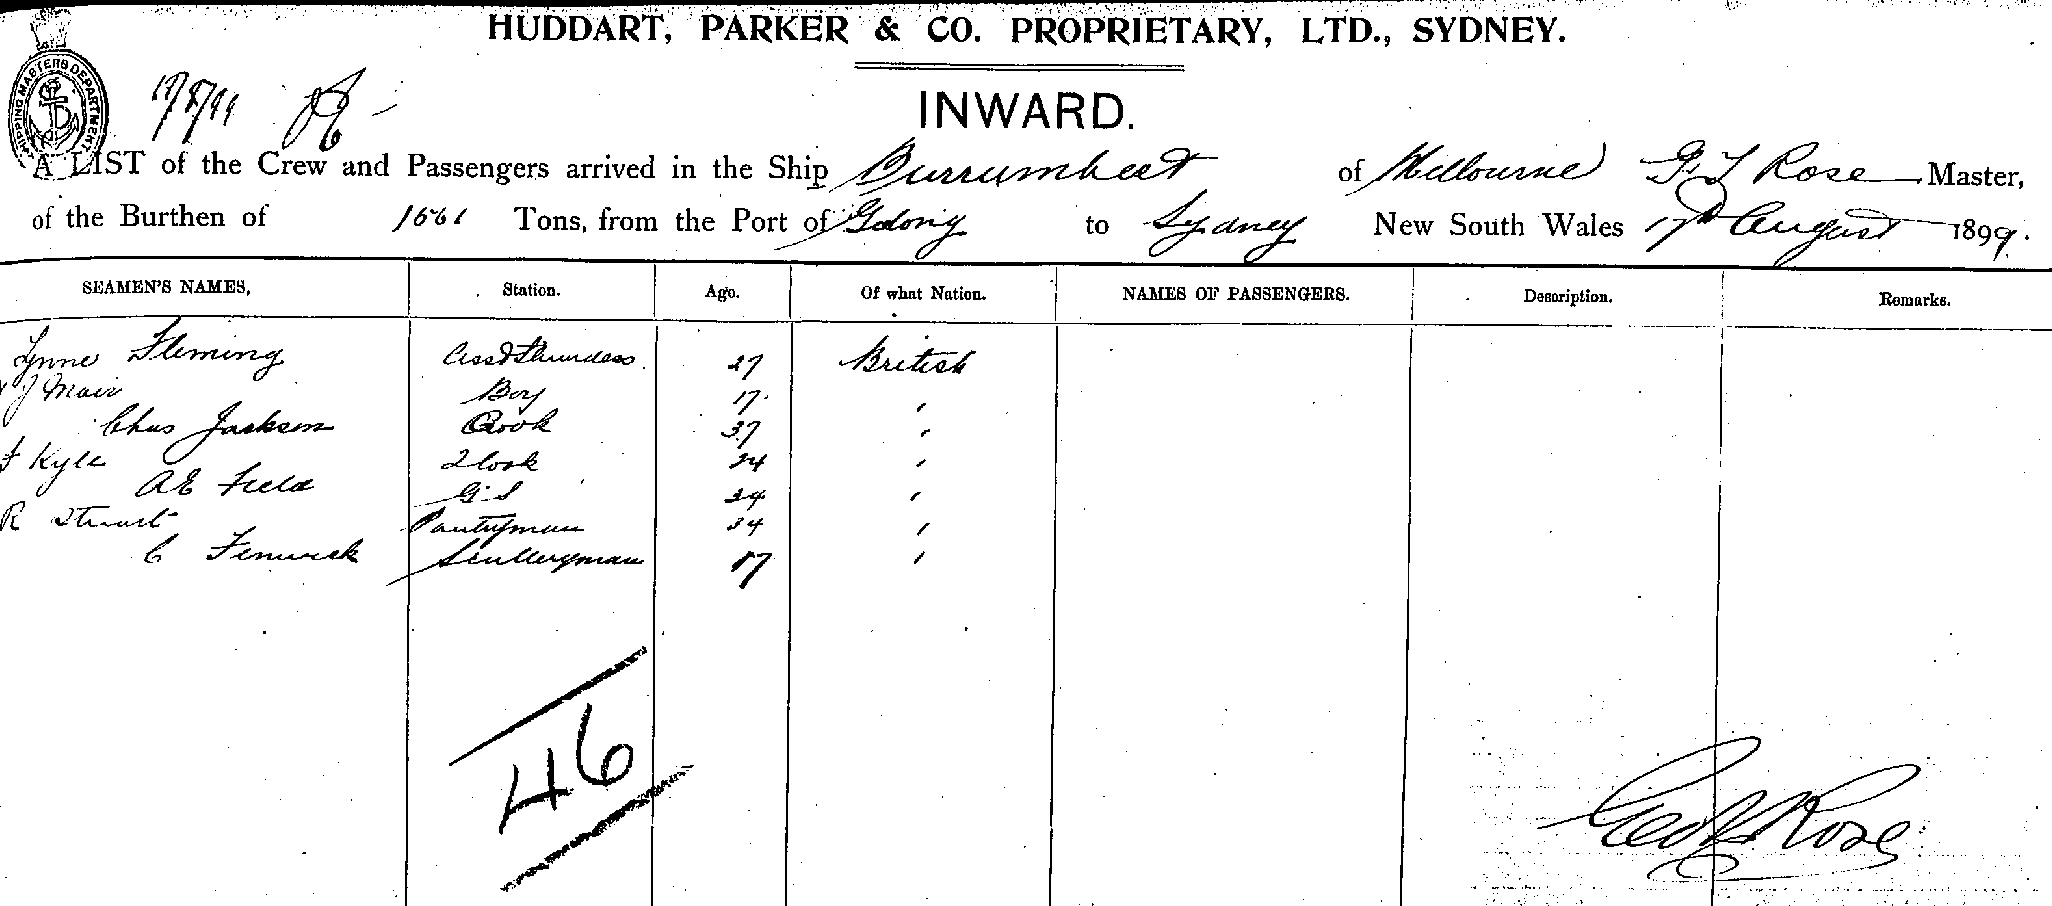 HUDDART, PARKER & CO. PROPRIETARY, LTD., SYDNEY.
SHIPPING MASTERS DEPARTMENT
17/8/99
INWARD.
A LIST of the Crew and Passengers arrived in the Ship Burrumbeet of Melbourne G J Rose Master,
of the Burthen of Tons, from the Port of Geelong to Sydney New South Wales 17th August 1899.
SEAMEN'S NAMES, Station. Age. Of what Nation. NAMES OF PASSENGERS. Description. Remarks.
Lynne Fleming Asst Stewardess 27 British
J Mair Boy 17 "
Chas Jackson Cook 37 "
F Kyle 2 Cook 24 "
A E Field G.S 24 "
R Stuart Pantryman 34 "
C Fenwick Sculleryman 17 "
46
Geo J Rose